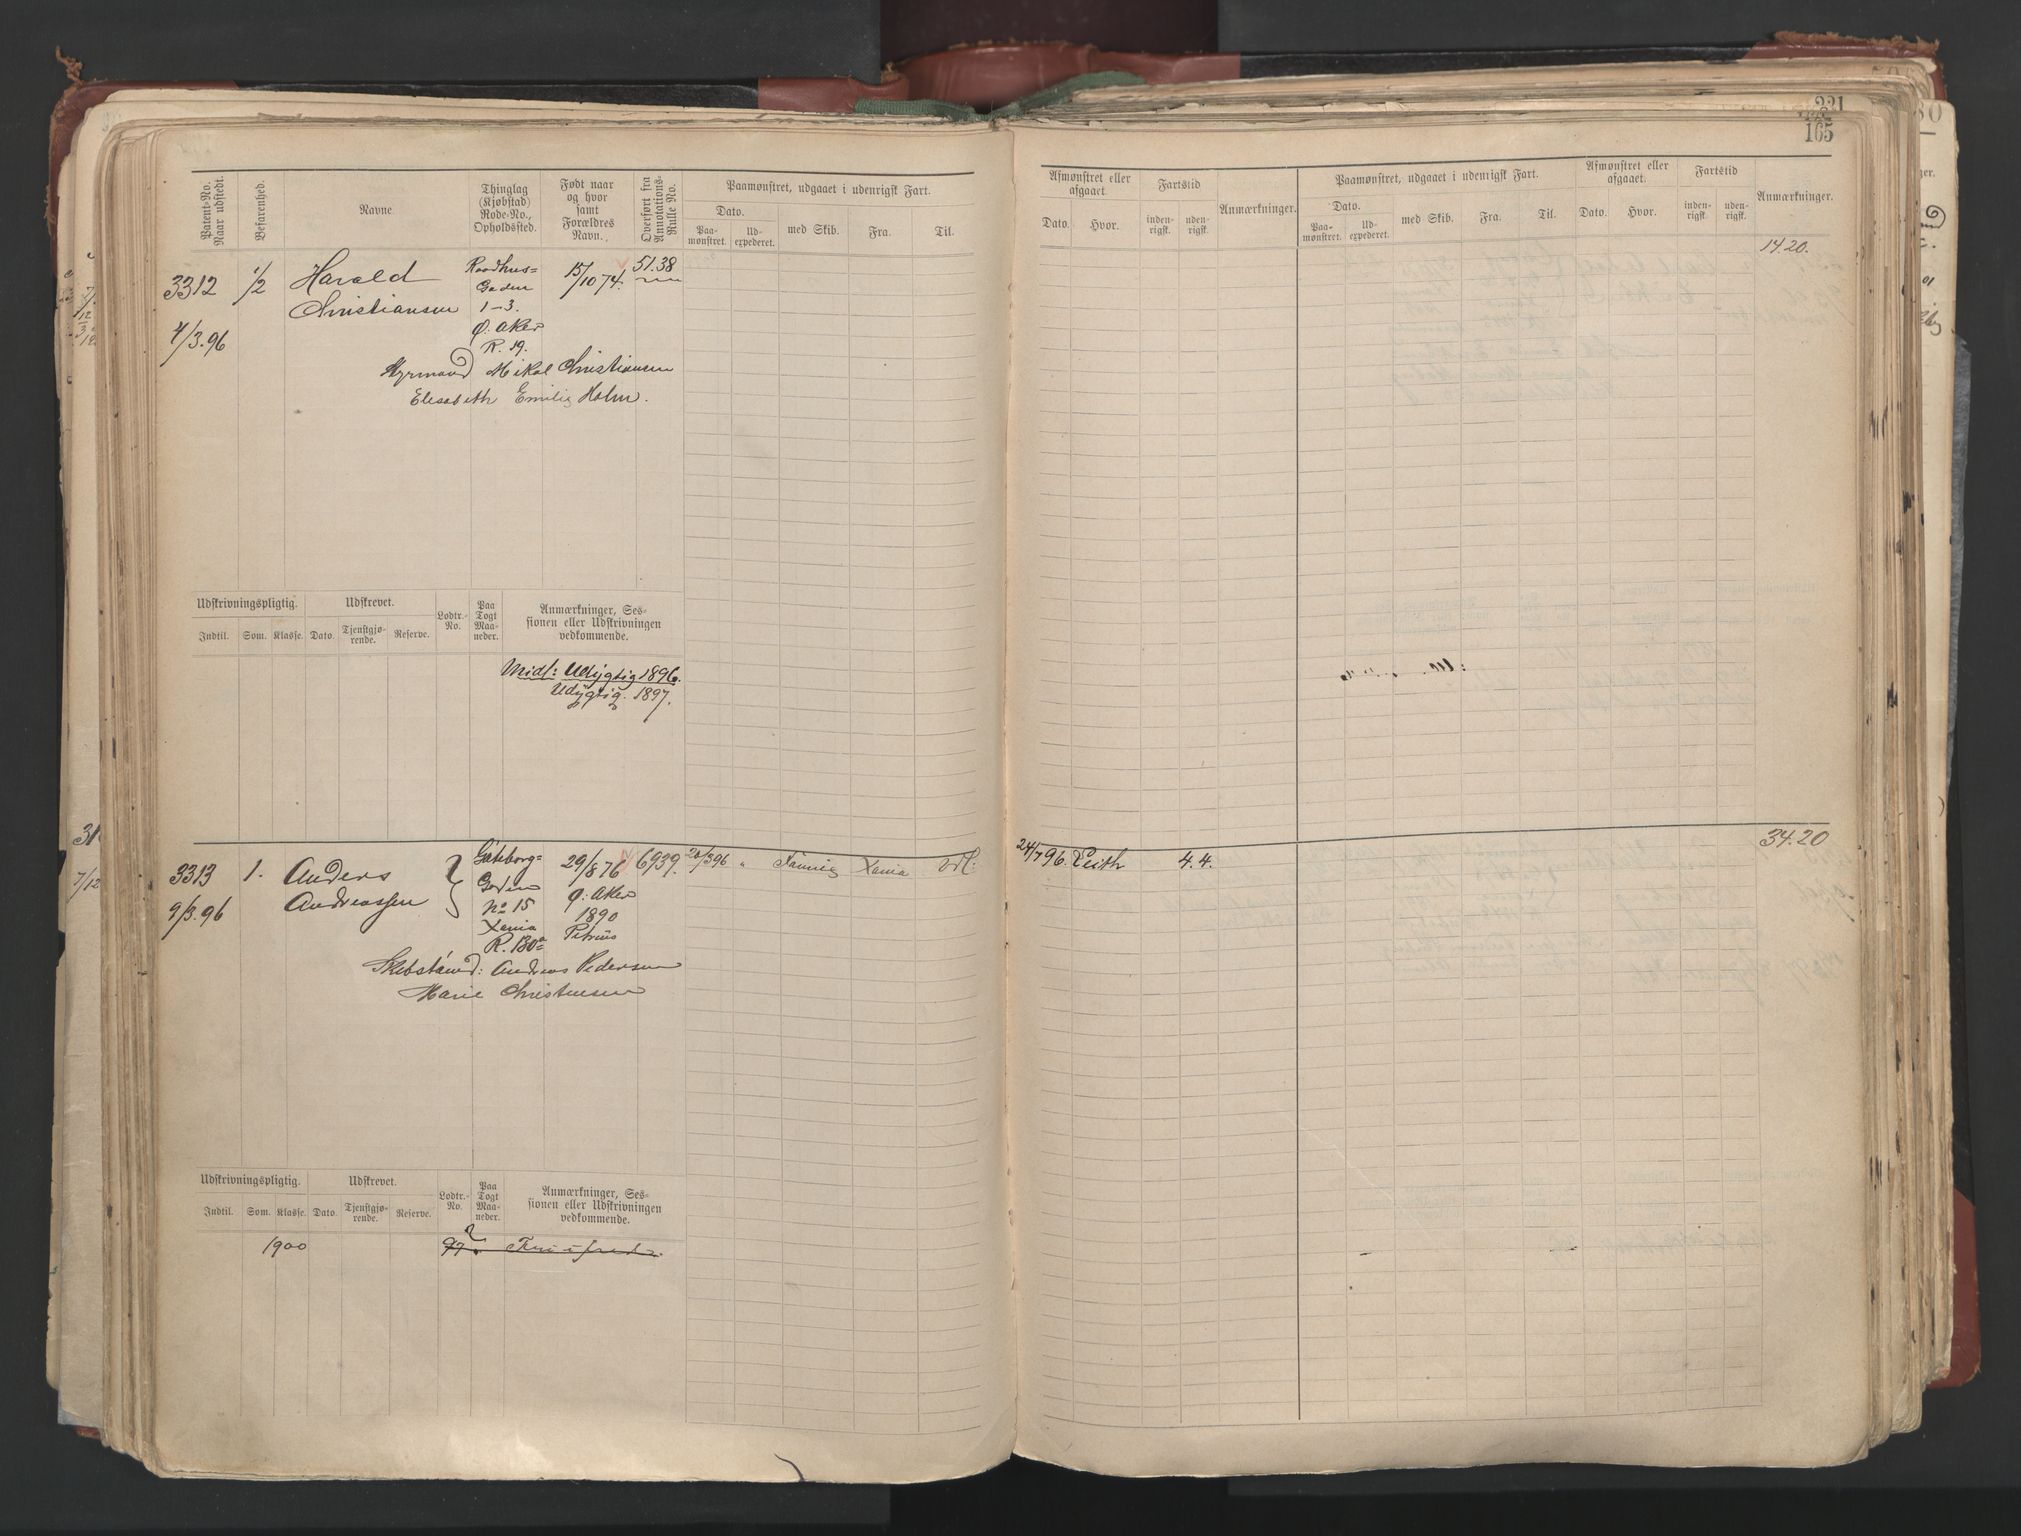 221
165
Patent-No. Naar udstedt.
Befarenhed.
Navne
Thinglag (Kjøbstad) Rode-No., Opholdssted.
Født naar og hvor samt Forældres Navn.
Overført fra Annotations-Rulle No.
Paamønstret, udgaaet i udenrigsk Fart.
Dato.
Paamønstret.
Udexpederet.
med Skib.
Fra.
Til.
Afmønstret eller afgaaet.
Dato.
Hvor.
Fartstid
indenrigsk.
udenrigsk.
Anmærkninger.
Paamønstret, udgaaet i udenrigsk Fart.
Dato.
Paamønstret.
Udexpederet.
med Skib.
Fra.
Til.
Afmønstret eller afgaaet.
Dato.
Hvor.
Fartstid
indenrigsk.
udenrigsk.
Anmærkninger.
1420.
3312
1/2
Harald
Christiansen
4/3.96
Raadhus=
Gaden
1-3.
Ø: Aker
R. 19.
15/10 74.
51.38
Styrmand Mikal Christiansen
Elisabeth Emilie Holm.
Udskrivningspligtig.
Udskrevet.
Lodtr.-No.
Paa Togt Maaneder.
Anmærkninger, Sessionen eller Udskrivningen vedkommende.
Indtil.
Som.
Klasse.
Dato.
Tjenstgjørende.
Reserve.
Midl: Udygtig 1896.
Udygtig. 1897.
3420
3313
9/3.96
1.
Anders
Andreassen
Gøteborg=
Gaden
No 15
Xania
R. 130a
29/8 76
Ø: Aker
1890
Petrus
6939.
20/3 96
"
Xania
Udl:
24/7 96.
Leith
4.4.
Andreas Pedersen
Marie Christensen
Udskrivningspligtig.
Udskrevet.
Lodtr.-No.
Paa Togt Maaneder.
Anmærkninger, Sessionen eller Udskrivningen vedkommende.
Indtil.
Som.
Klasse.
Dato.
Tjenstgjørende.
Reserve.
1900
97